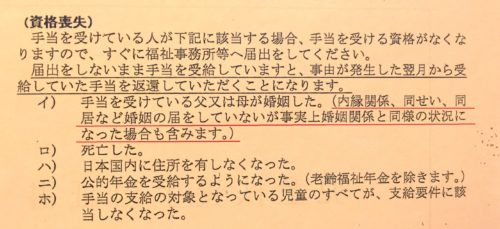 (資格喪失)
手当を受けている人が下記に該当する場合、手当を受ける資格がなくな
りますので、すぐに福祉事務所等へ届出をしてください。
届出をしないまま手当を受給していますと、事由が発生した翌月から受
給していた手当を返還していただくことになります。
イ) 手当を受けている父又は母が婚姻した。(内縁関係、同せい、同
居など婚姻の届をしていないが事実上婚姻関係と同様の状況に
なった場合も含みます。)
ロ) 死亡した。
ハ) 日本国内に住所を有しなくなった。
ニ) 公的年金を受給するようになった。(老齢福祉年金を除きます。)
ホ) 手当の支給の対象となっている児童のすべてが、支給要件に該
当しなくなった。